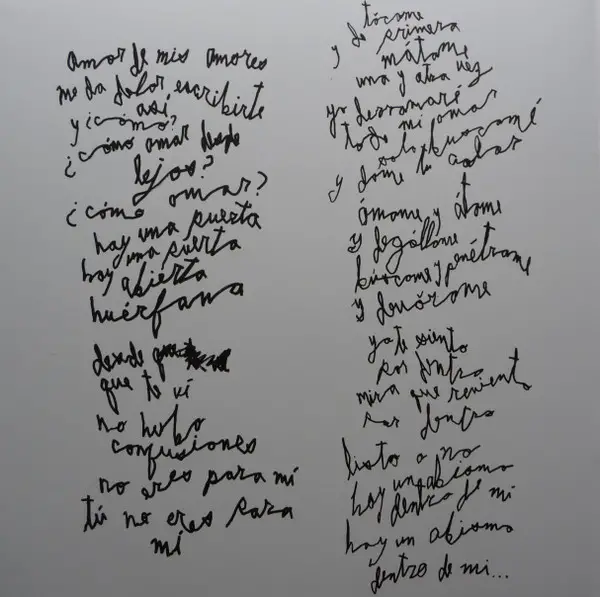 amor de mis amores
me da dolor escribirte
así
y ¿cómo?
¿cómo amar desde
lejos?
¿cómo amar?
hay una puerta
hay una puerta
hay abierta
huérfana
desde
que te vi
no hubo
confusiones
no eres para mí
tú no eres para
mí
tócame
y de primera
mátame
una y otra vez
yo derramaré
todo mi amar
solo buscamé
y dáme tu
ámame y átame
y dególlame
búscame y penétrame
y devórame
ya te siento
por dentro
mira que reviento
por dentro
listo o no
hay un abismo
dentro de mi
hay un abismo
dentro de mi...